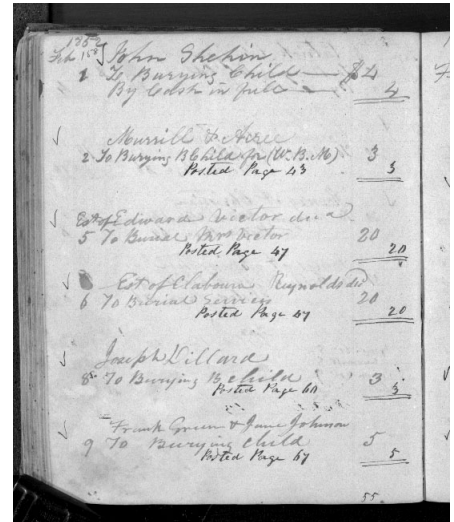 1852
Feb 1st John Shehin
1 To Burying Child — $4
By Cash in full — 4
Murrill & Acree
2 To Burying B Child for (W.B.M) 3
Posted Page 43 3
Est of Edward Victor decd
5 To Burial Mrs Victor 20
Posted Page 47 20
Est of Claborn Reynolds decd
6 To Burial Services 20
Posted Page 47 20
Joseph Dillard
8 To Burying B child 3
Posted Page 60 3
Frank Green & June Johnson
9 To Burying child 5
Posted Page 67 5
55